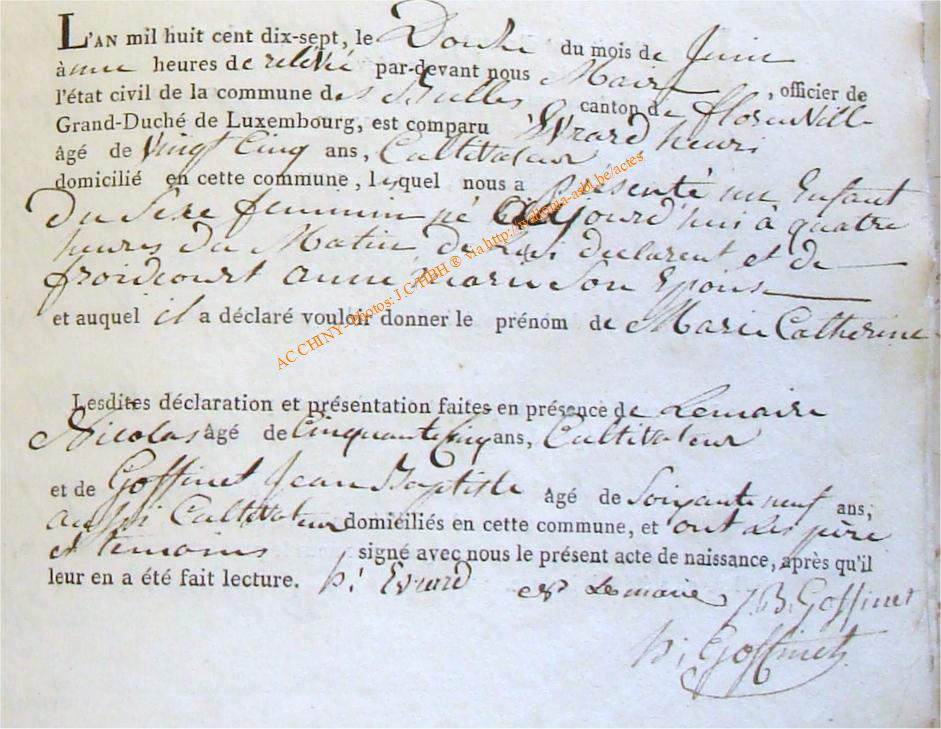 L'AN mil huit cent dix-sept, le Douze du mois de Juin
à une heures de relevée par-devant nous Maire, officier de
l'état civil de la commune des Bulles canton de florenville
Grand-Duché de Luxembourg, est comparu Evrard henri
âgé de Vingt Cinq ans, Cultivateur
domicilié en cette commune, lequel nous a presenté un Enfant
du Sexe feminin né aujourd'hui à quatre
heures du Matin de lui declarent et de
froidcourt anne marie Son Epouse
et auquel il a déclaré vouloir donner le prénom de Marie Catherine
AC CHINY - Photos: J.C HBH ® via http://wallonia-asbl.be/actes
Lesdites déclaration et présentation faites en présence de Lemaire
Nicolas âgé de Cinquante Cinq ans, Cultivateur
et de Goffinet Jean Baptiste âgé de Soixante neuf ans,
aussi Cultivateur domiciliés en cette commune, et ont les père
et temoins signé avec nous le présent acte de naissance, après qu'il
leur en a été fait lecture. h: Evrard Lemaire J.B. Goffinet
h: Goffinet